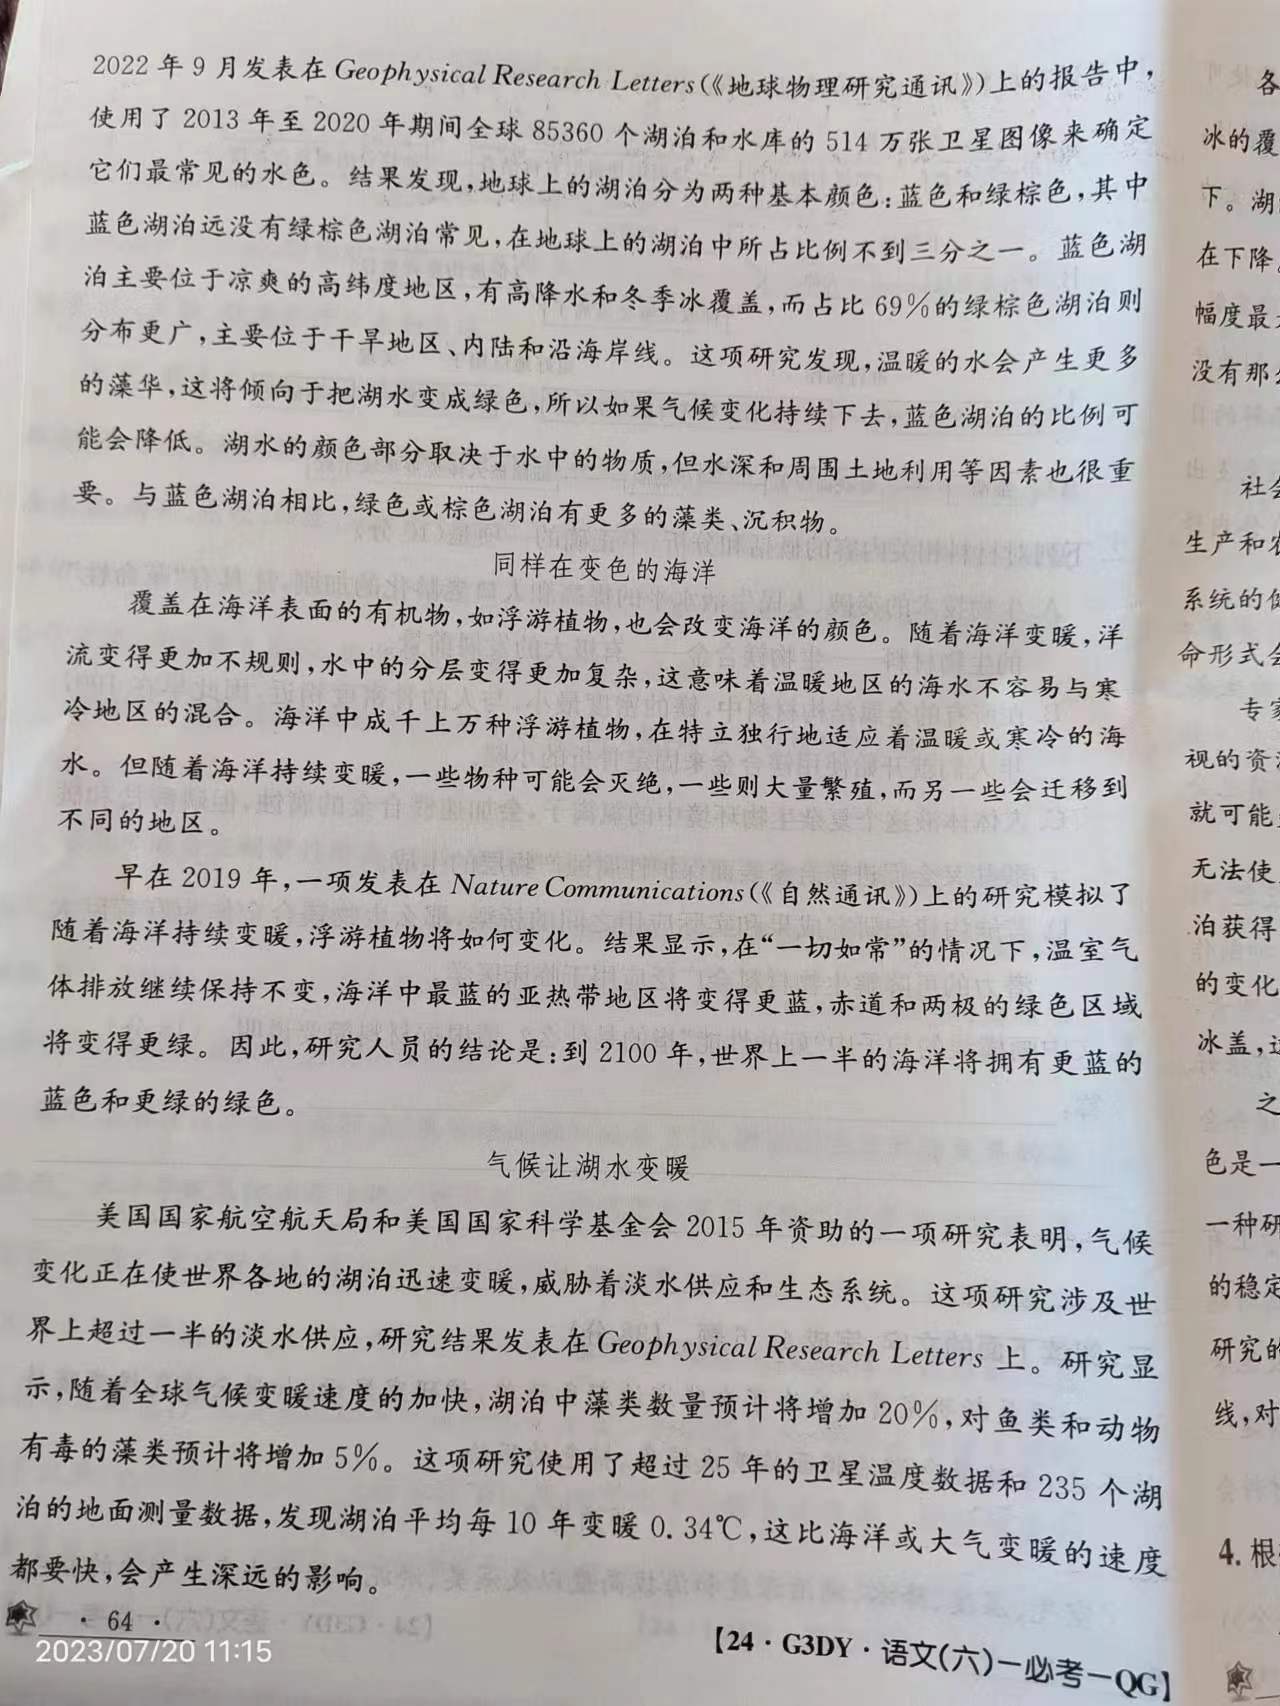 2022 年 9 月发表在 Geophysical Research Letters(《地球物理研究通讯》)上的报告中,
使用了 2013 年至 2020 年期间全球 85360 个湖泊和水库的 514 万张卫星图像来确定
它们最常见的水色。结果发现,地球上的湖泊分为两种基本颜色:蓝色和绿棕色,其中
蓝色湖泊远没有绿棕色湖泊常见,在地球上的湖泊中所占比例不到三分之一。蓝色湖
泊主要位于凉爽的高纬度地区,有高降水和冬季冰覆盖,而占比 69%的绿棕色湖泊则
分布更广,主要位于干旱地区、内陆和沿海岸线。这项研究发现,温暖的水会产生更多
的藻华,这将倾向于把湖水变成绿色,所以如果气候变化持续下去,蓝色湖泊的比例可
能会降低。湖水的颜色部分取决于水中的物质,但水深和周围土地利用等因素也很重
要。与蓝色湖泊相比,绿色或棕色湖泊有更多的藻类、沉积物。
同样在变色的海洋
覆盖在海洋表面的有机物,如浮游植物,也会改变海洋的颜色。随着海洋变暖,洋
流变得更加不规则,水中的分层变得更加复杂,这意味着温暖地区的海水不容易与寒
冷地区的混合。海洋中成千上万种浮游植物,在特立独行地适应着温暖或寒冷的海
水。但随着海洋持续变暖,一些物种可能会灭绝,一些则大量繁殖,而另一些会迁移到
不同的地区。
早在 2019 年,一项发表在 Nature Communications(《自然通讯》)上的研究模拟了
随着海洋持续变暖,浮游植物将如何变化。结果显示,在“一切如常”的情况下,温室气
体排放继续保持不变,海洋中最蓝的亚热带地区将变得更蓝,赤道和两极的绿色区域
将变得更绿。因此,研究人员的结论是:到 2100 年,世界上一半的海洋将拥有更蓝的
蓝色和更绿的绿色。
气候让湖水变暖
美国国家航空航天局和美国国家科学基金会 2015 年资助的一项研究表明,气候
变化正在使世界各地的湖泊迅速变暖,威胁着淡水供应和生态系统。这项研究涉及世
界上超过一半的淡水供应,研究结果发表在 Geophysical Research Letters 上。研究显
示,随着全球气候变暖速度的加快,湖泊中藻类数量预计将增加 20%,对鱼类和动物
有毒的藻类预计将增加 5%。这项研究使用了超过 25 年的卫星温度数据和 235 个湖
泊的地面测量数据,发现湖泊平均每 10 年变暖 0.34℃,这比海洋或大气变暖的速度
都要快,会产生深远的影响。
· 64 ·
【24·G3DY·语文(六)—必考—QG】
2023/07/20 11:15
各
冰的覆
下。湖
在下降
幅度最
没有那
社会
生产和农
系统的
命形式会
专家
视的资
就可能
无法使
泊获得
的变化
冰盖,这
之
色是一
一种研
的稳定
研究的
线,对
4. 根